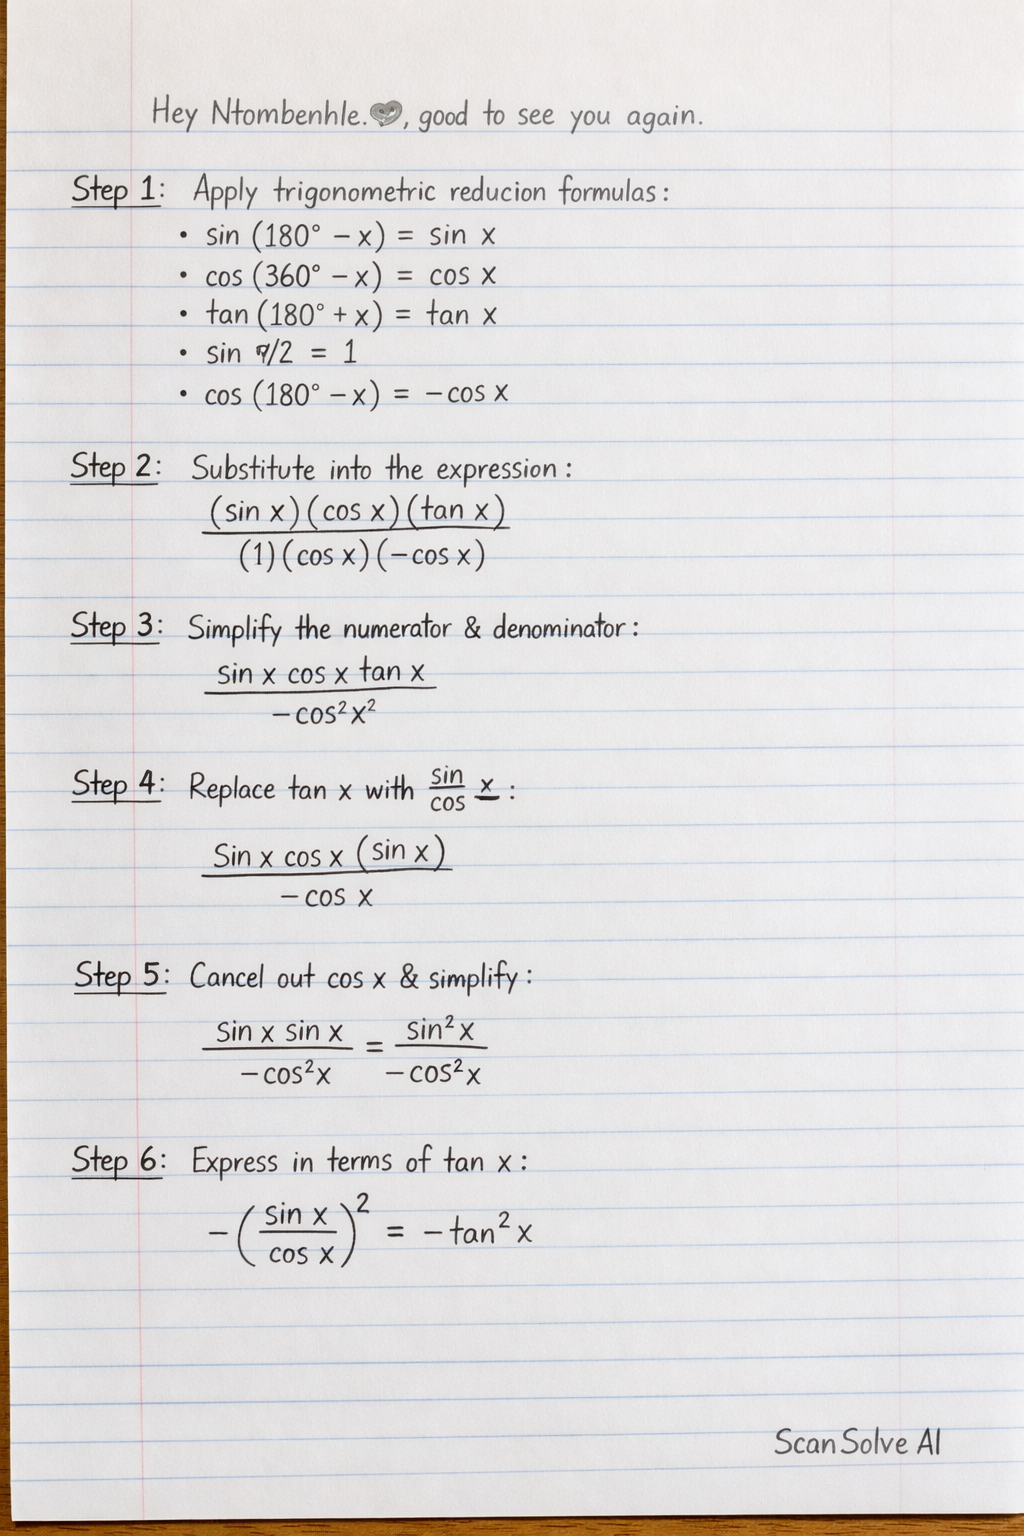 Hey Ntombenhle.🩶, good to see you again.
Step 1: Apply trigonometric reducion formulas:
• sin (180° − x) = sin x
• cos (360° − x) = cos x
• tan (180° + x) = tan x
• sin /2 = 1
• cos (180° − x) = −cos x
Step 2: Substitute into the expression:
(sin x)(cos x)(tan x)
(1)(cos x)(−cos x)
Step 3: Simplify the numerator & denominator:
sin x cos x tan x
−cos²x²
Step 4: Replace tan x with sin/cos x:
Sin x cos x (sin x)
−cos x
Step 5: Cancel out cos x & simplify:
Sin x sin x / −cos²x = sin²x / −cos²x
Step 6: Express in terms of tan x:
−(sin x / cos x)² = −tan²x
ScanSolve AI